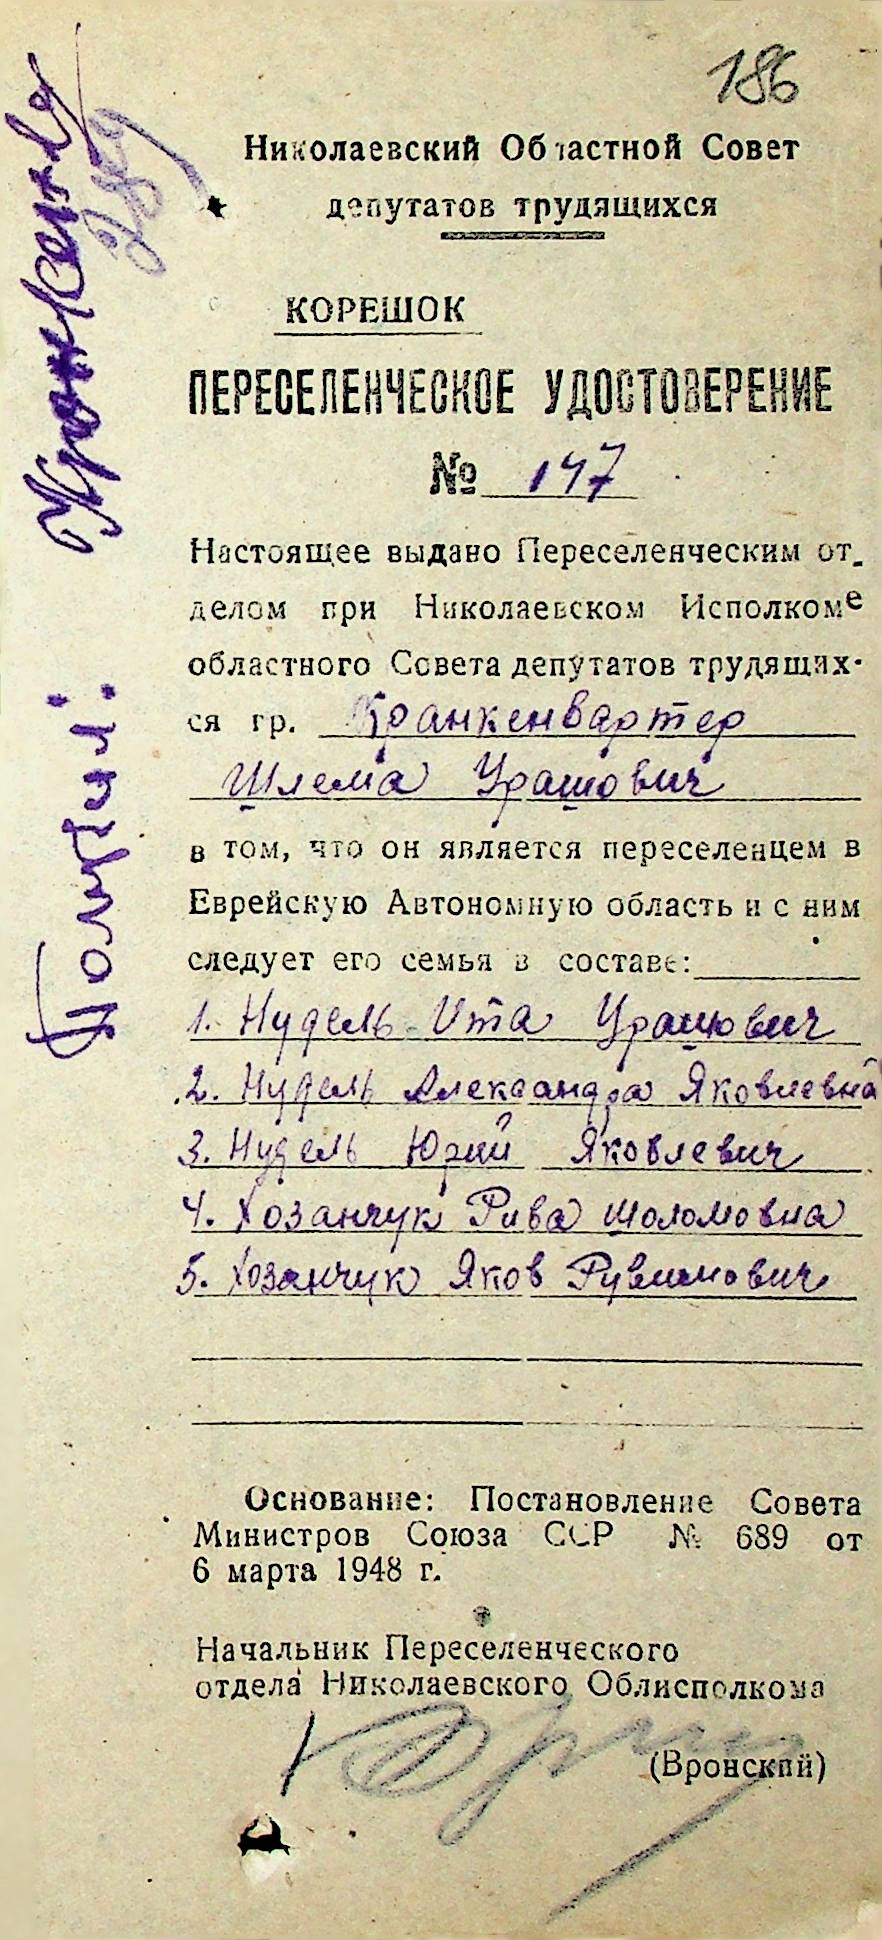 186
Николаевский Областной Совет
депутатов трудящихся
КОРЕШОК
ПЕРЕСЕЛЕНЧЕСКОЕ УДОСТОВЕРЕНИЕ
№ 147
Настоящее выдано Переселенческим от-
делом при Николаевском Исполкоме
областного Совета депутатов трудящих-
ся гр. Кранкенвартер
Шлема Урашович
в том, что он является переселенцем в
Еврейскую Автономную область и с ним
следует его семья в составе:
1. Нудель Ита Урашович
2. Нудель Александра Яковлевна
3. Нудель Юрий Яковлевич
4. Хозанчук Рива Шоломовна
5. Хозанчук Яков Рувимович
Основание: Постановление Совета
Министров Союза ССР № 689 от
6 марта 1948 г.
Начальник Переселенческого
отдела Николаевского Облисполкома
(Вронский)
Получил: